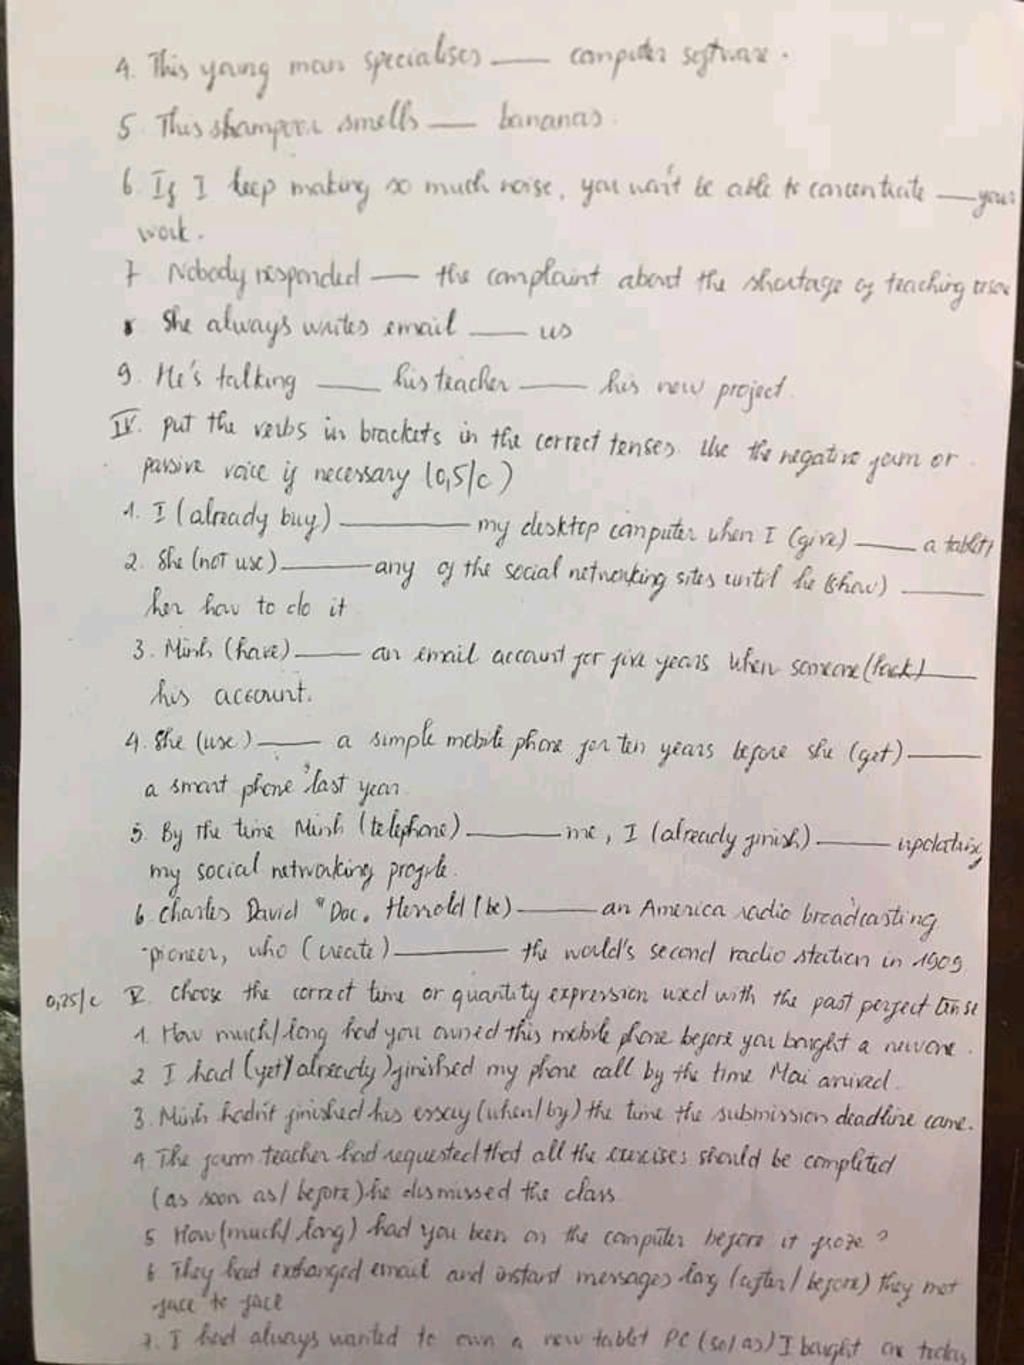 4. This young man specialises ___ computer software.
5. This shampoo smells ___ bananas.
6. If I keep making so much noise, you won't be able to concentrate ___ your
work.
7 Nobody responded ___ the complaint about the shortage of teaching
8 She always writes email ___ us
9. He's talking ___ his teacher ___ his new project.
IV. put the verbs in brackets in the correct tenses. Use the negative form or
passive voice if necessary (0,5/c)
1. I (already buy) ___ my desktop computer when I (give) ___ a tablet
2. She (not use) ___ any of the social networking sites until he (show) ___
her how to do it
3. Minh (have) ___ an email account for five years when someone (hack) ___
his account.
4. She (use) ___ a simple mobile phone for ten years before she (get) ___
a smart phone last year.
5. By the time Minh (telephone) ___ me, I (already finish) ___ updating
my social networking profile.
6. Charles David "Doc. Herrold (be) ___ an America radio broadcasting
pioneer, who (create) ___ the world's second radio station in 1909
0,25/c V. Choose the correct time or quantity expression used with the past perfect tense
1. How much/long had you owned this mobile phone before you bought a new one.
2 I had (yet/already) finished my phone call by the time Mai arrived.
3. Minh hadn't finished his essay (when/by) the time the submission deadline came.
4. The form teacher had requested that all the exercises should be completed
(as soon as/before) he dismissed the class
5 How (much/long) had you been on the computer before it froze?
6 They had exchanged email and instant messages long (after/before) they met
face to face
7. I had always wanted to own a new tablet PC (so/as) I bought one today